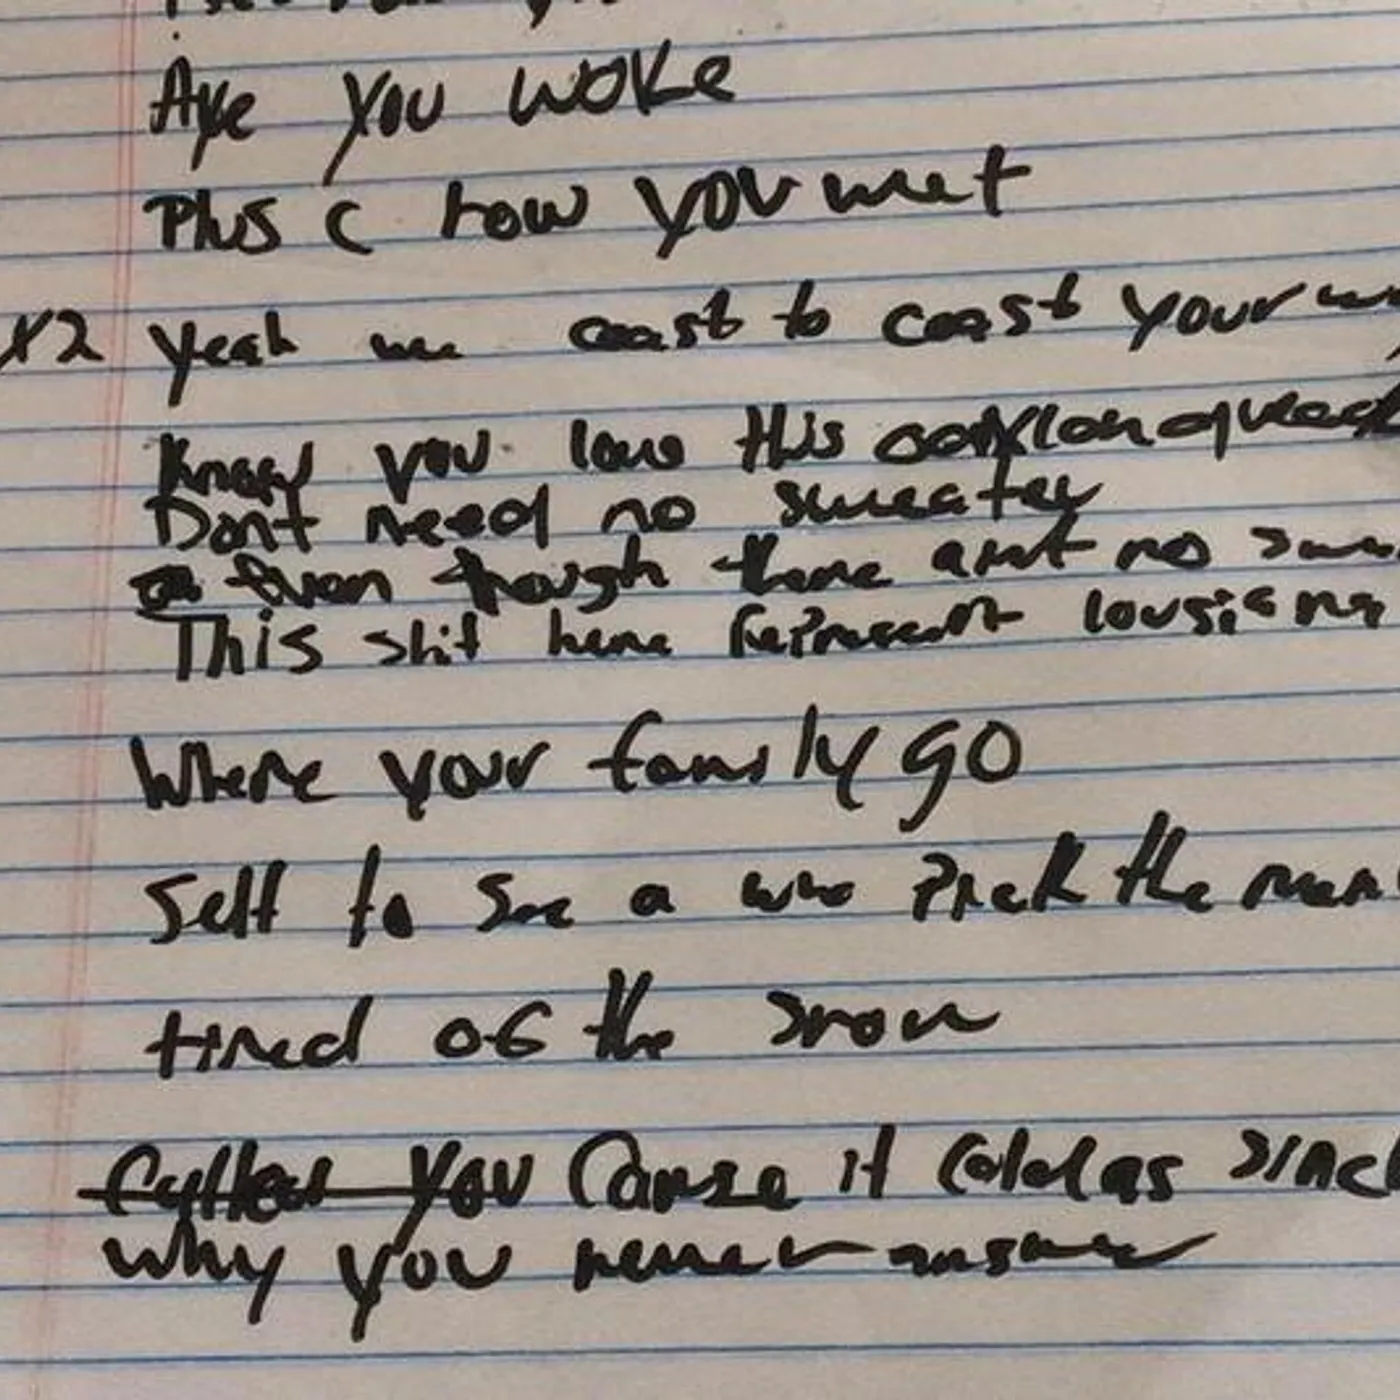 Aye you woke
Plus C how you met
X2 Yeah we coast to coast your
Know you love this
Dont need no sweater
Even though there aint no
This shit here Represent lousiana
Where your family go
Self to see a who the
tired of the snow
Called You Cause it Cold as
why you never answer